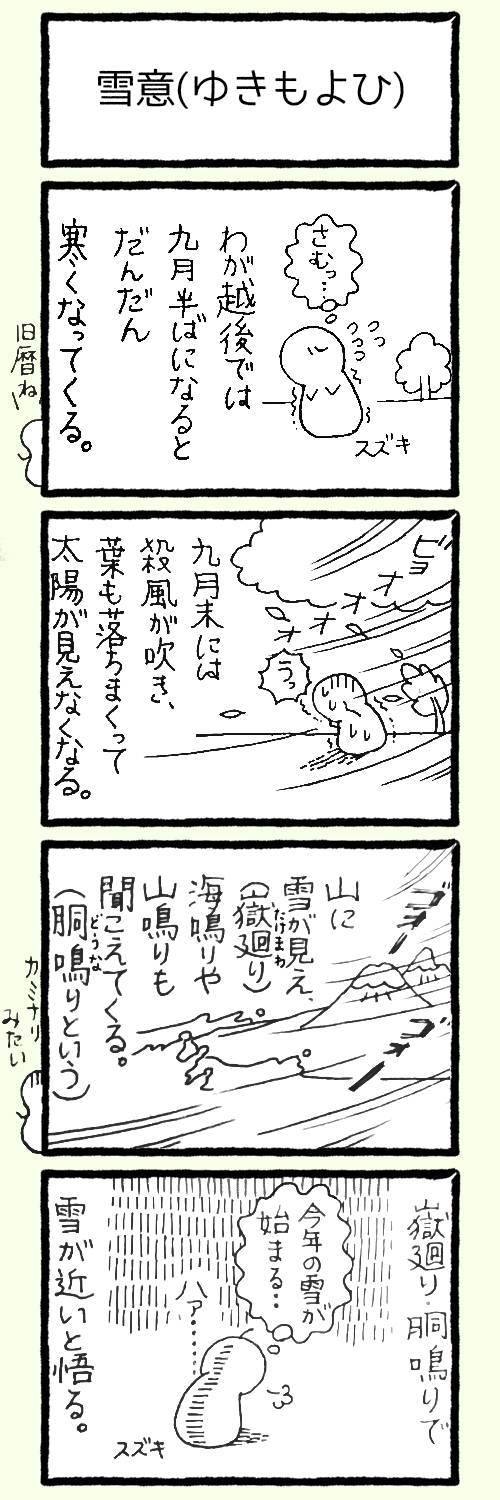 雪意(ゆきもよひ)
さむっ…
わが越後では
九月半ばになると
だんだん
寒くなってくる。
スズキ
旧暦ね
ビョ
オ
オ
オ
オ
うっ
九月末には
殺風が吹き、
葉も落ちまくって
太陽が見えなくなる。
ゴォー
ゴォー
山に
雪が見え、
(嶽廻り)
たけまわ
海鳴りや
山鳴りも
聞こえてくる。
(胴鳴りという)
どうな
カミナリ
みたい
嶽廻り・胴鳴りで
今年の雪が
始まる…
ハァ……
雪が近いと悟る。
スズキ